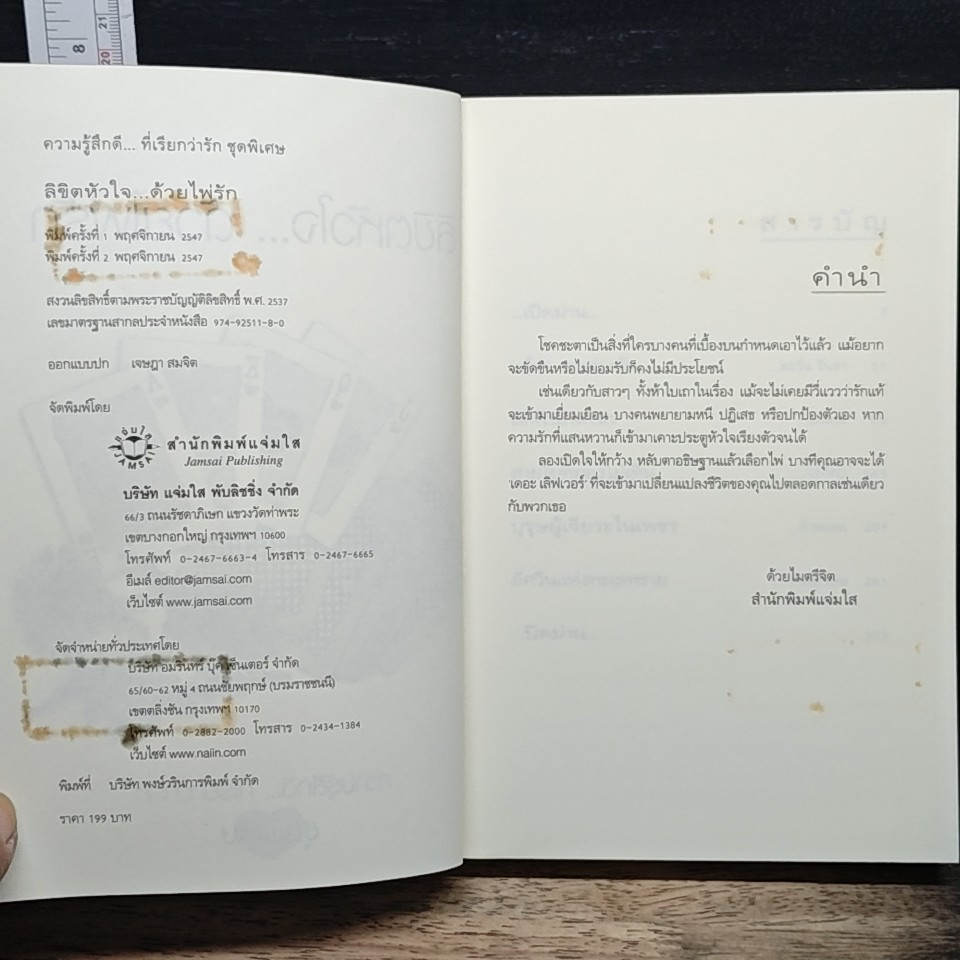 8
21
20
ความรู้สึกดี... ที่เรียกว่ารัก ชุดพิเศษ
ลิขิตหัวใจ...ด้วยไพ่รัก
พิมพ์ครั้งที่ 1 พฤศจิกายน 2547
พิมพ์ครั้งที่ 2 พฤศจิกายน 2547
สงวนลิขสิทธิ์ตามพระราชบัญญัติลิขสิทธิ์ พ.ศ. 2537
เลขมาตรฐานสากลประจำหนังสือ 974-92511-8-0
ออกแบบปก เจษฎา สมจิต
จัดพิมพ์โดย
แจ่มใส
JAMSAI
สำนักพิมพ์แจ่มใส
Jamsai Publishing
บริษัท แจ่มใส พับลิชชิ่ง จำกัด
66/3 ถนนรัชดาภิเษก แขวงวัดท่าพระ
เขตบางกอกใหญ่ กรุงเทพฯ 10600
โทรศัพท์ 0-2467-6663-4 โทรสาร 0-2467-6665
อีเมล์ editor@jamsai.com
เว็บไซต์ www.jamsai.com
จัดจำหน่ายทั่วประเทศโดย
บริษัท อมรินทร์ บุ๊คเซ็นเตอร์ จำกัด
65/60-62 หมู่ 4 ถนนชัยพฤกษ์ (บรมราชชนนี)
เขตตลิ่งชัน กรุงเทพฯ 10170
โทรศัพท์ 0-2882-2000 โทรสาร 0-2434-1384
เว็บไซต์ www.naiin.com
พิมพ์ที่ บริษัท พงษ์วรินการพิมพ์ จำกัด
ราคา 199 บาท
คำนำ
โชคชะตาเป็นสิ่งที่ใครบางคนที่เบื้องบนกำหนดเอาไว้แล้ว แม้อยาก
จะขัดขืนหรือไม่ยอมรับก็คงไม่มีประโยชน์
เช่นเดียวกับสาวๆ ทั้งห้าใบเถาในเรื่อง แม้จะไม่เคยมีวี่แววว่ารักแท้
จะเข้ามาเยี่ยมเยือน บางคนพยายามหนี ปฏิเสธ หรือปกป้องตัวเอง หาก
ความรักที่แสนหวานก็เข้ามาเคาะประตูหัวใจเรียงตัวจนได้
ลองเปิดใจให้กว้าง หลับตาอธิษฐานแล้วเลือกไพ่ บางทีคุณอาจจะได้
'เดอะ เลิฟเวอร์' ที่จะเข้ามาเปลี่ยนแปลงชีวิตของคุณไปตลอดกาลเช่นเดียว
กับพวกเธอ
ด้วยไมตรีจิต
สำนักพิมพ์แจ่มใส